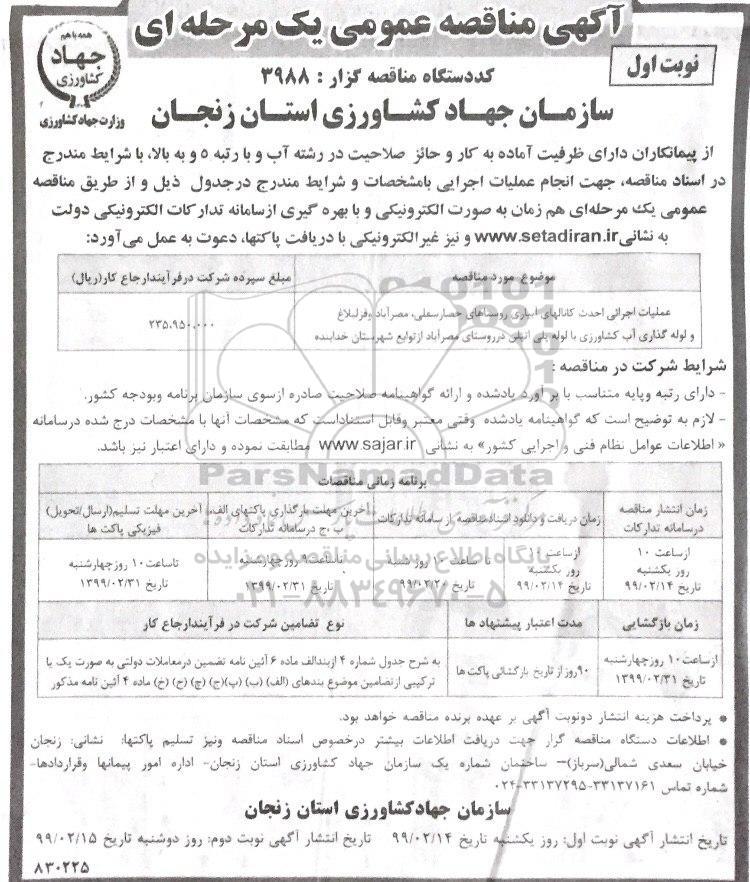 آگهی مناقصه عمومی یک مرحله ای
نوبت اول
همه با هم
جهاد
کشاورزی
وزارت جهاد کشاورزی
کد دستگاه مناقصه گزار : ۳۹۸۸
سازمان جهاد کشاورزی استان زنجان
از پیمانکاران دارای ظرفیت آماده به کار و حائز صلاحیت در رشته آب و با رتبه ۵ و به بالا، با شرایط مندرج
در اسناد مناقصه، جهت انجام عملیات اجرایی بامشخصات و شرایط مندرج درجدول ذیل و از طریق مناقصه
عمومی یک مرحله‌ای هم زمان به صورت الکترونیکی و با بهره گیری ازسامانه تدارکات الکترونیکی دولت
به نشانی www.setadiran.ir و نیز غیرالکترونیکی با دریافت پاکتها، دعوت به عمل می‌آورد:
موضوع مورد مناقصه
مبلغ سپرده شرکت درفرآیندارجاع کار(ریال)
عملیات اجرائی احدث کانالهای آبیاری روستاهای حصارسفلی، مصرآباد وقزلبلاغ
و لوله گذاری آب کشاورزی با لوله پلی اتیلن درروستای مصرآباد ازتوابع شهرستان خدابنده
۲۳۵،۹۵۰،۰۰۰
شرایط شرکت در مناقصه :
- دارای رتبه وپایه متناسب با برآورد یادشده و ارائه گواهینامه صلاحیت صادره ازسوی سازمان برنامه وبودجه کشور.
- لازم به توضیح است که گواهینامه یادشده وقتی معتبر وقابل استناداست که مشخصات آنها با مشخصات درج شده درسامانه
« اطلاعات عوامل نظام فنی و اجرایی کشور» به نشانی www.sajar.ir مطابقت نموده و دارای اعتبار نیز باشد.
ParsNamadData
برنامه زمانی مناقصات
زمان انتشار مناقصه
درسامانه تدارکات
زمان دریافت و دانلود اسنادمناقصه از سامانه تدارکات
آخرین مهلت بارگذاری پاکتهای الف،
ب،ج درسامانه تدارکات
آخرین مهلت تسلیم(ارسال/تحویل)
فیزیکی پاکت ها
ازساعت ۱۰
روز یکشنبه
تاریخ ۹۹/۰۲/۱۴
ازساعت ۱۰
روز یکشنبه
تاریخ ۹۹/۰۲/۱۴
تا ساعت ۱۰ روز شنبه
تاریخ ۹۹/۰۲/۲۰
تاساعت ۹ روزچهارشنبه
تاریخ ۱۳۹۹/۰۲/۳۱
تاساعت ۱۰ روزچهارشنبه
تاریخ ۱۳۹۹/۰۲/۳۱
پایگاه اطلاع رسانی مناقصه و مزایده
۰۲۱-۸۸۳۴۹۶۷۰-۵
زمان بازگشایی
مدت اعتبار پیشنهاد ها
نوع تضامین شرکت در فرآیندارجاع کار
ازساعت ۱۰ روزچهارشنبه
تاریخ ۱۳۹۹/۰۲/۳۱
۹۰روز از تاریخ بازگشائی پاکت ها
به شرح جدول شماره ۴ ازبندالف ماده ۶ آئین نامه تضمین درمعاملات دولتی به صورت یک یا
ترکیبی ازتضامین موضوع بندهای (الف) (ب) (پ)(ج) (چ) (ح) (خ) ماده ۴ آئین نامه مذکور
● پرداخت هزینه انتشار دونوبت آگهی بر عهده برنده مناقصه خواهد بود.
● اطلاعات دستگاه مناقصه گزار جهت دریافت اطلاعات بیشتر درخصوص اسناد مناقصه ونیز تسلیم پاکتها: نشانی: زنجان
خیابان سعدی شمالی(سرباز)– ساختمان شماره یک سازمان جهاد کشاورزی استان زنجان- اداره امور پیمانها وقراردادها-
شماره تماس ۳۳۱۳۷۱۶۱-۳۳۱۳۷۲۹۵-۰۲۴
سازمان جهادکشاورزی استان زنجان
تاریخ انتشار آگهی نوبت اول: روز یکشنبه تاریخ ۹۹/۰۲/۱۴ تاریخ انتشار آگهی نوبت دوم: روز دوشنبه تاریخ ۹۹/۰۲/۱۵
۸۳۰۲۲۵